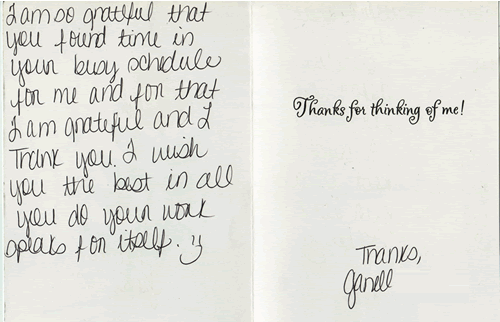 I am so grateful that
you found time in
your busy schedule
for me and for that
I am grateful and I
Thank you. I wish
you the best in all
you do your work
speaks for itself. :)
Thanks for thinking of me!
Thanks,
Janell